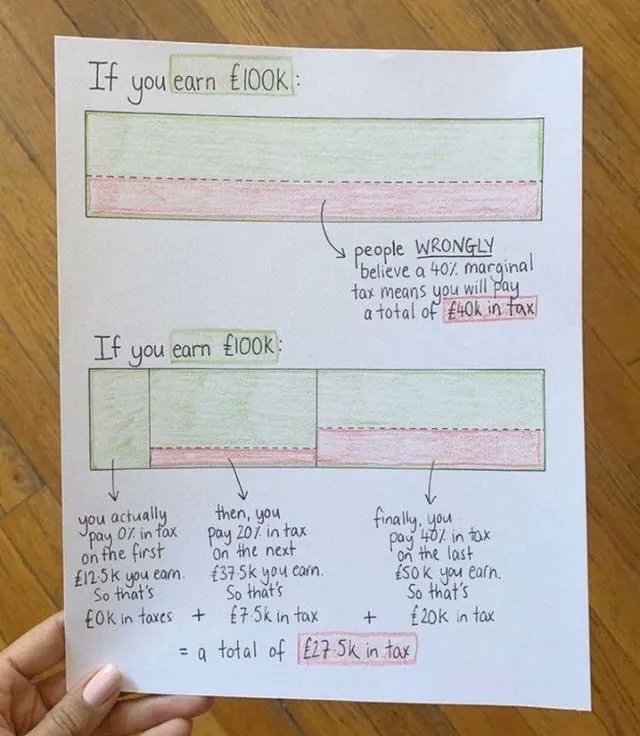 If you earn £100k:
people WRONGLY
believe a 40% marginal
tax means you will pay
a total of £40k in tax
If you earn £100k:
you actually
pay 0% in tax
on the first
£12.5k you earn.
So that's
£0k in taxes
+
then, you
pay 20% in tax
on the next
£37.5k you earn.
So that's
£7.5k in tax
+
finally, you
pay 40% in tax
on the last
£50k you earn.
So that's
£20k in tax
= a total of £27.5k in tax